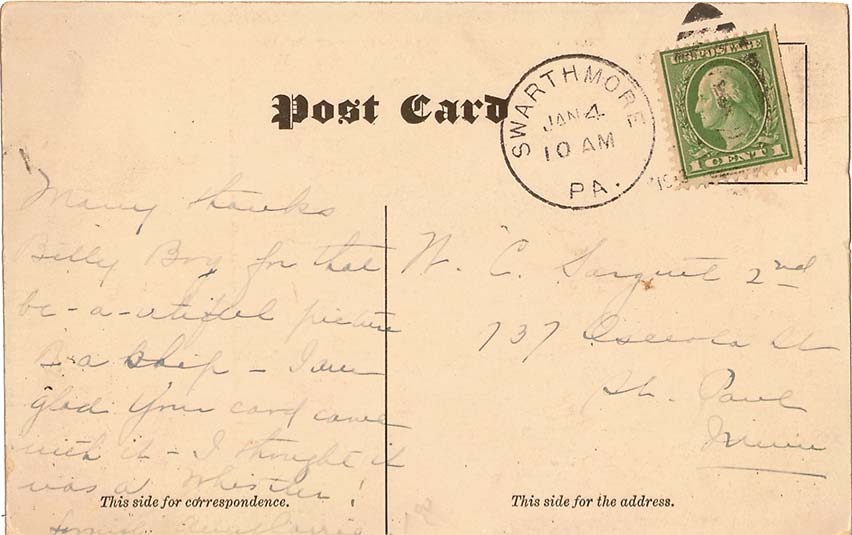 Post Card
SWARTHMORE
JAN 4
10 AM
PA.
U.S. POSTAGE
1 CENT 1
Many thanks
Billy Boy for that
be-a-utiful picture
a ship - I am
glad your card came
with it - I thought it
was a Whistler!
W. C. Sargent 2nd
737 Osceola St
St. Paul
Minn
This side for correspondence.
This side for the address.